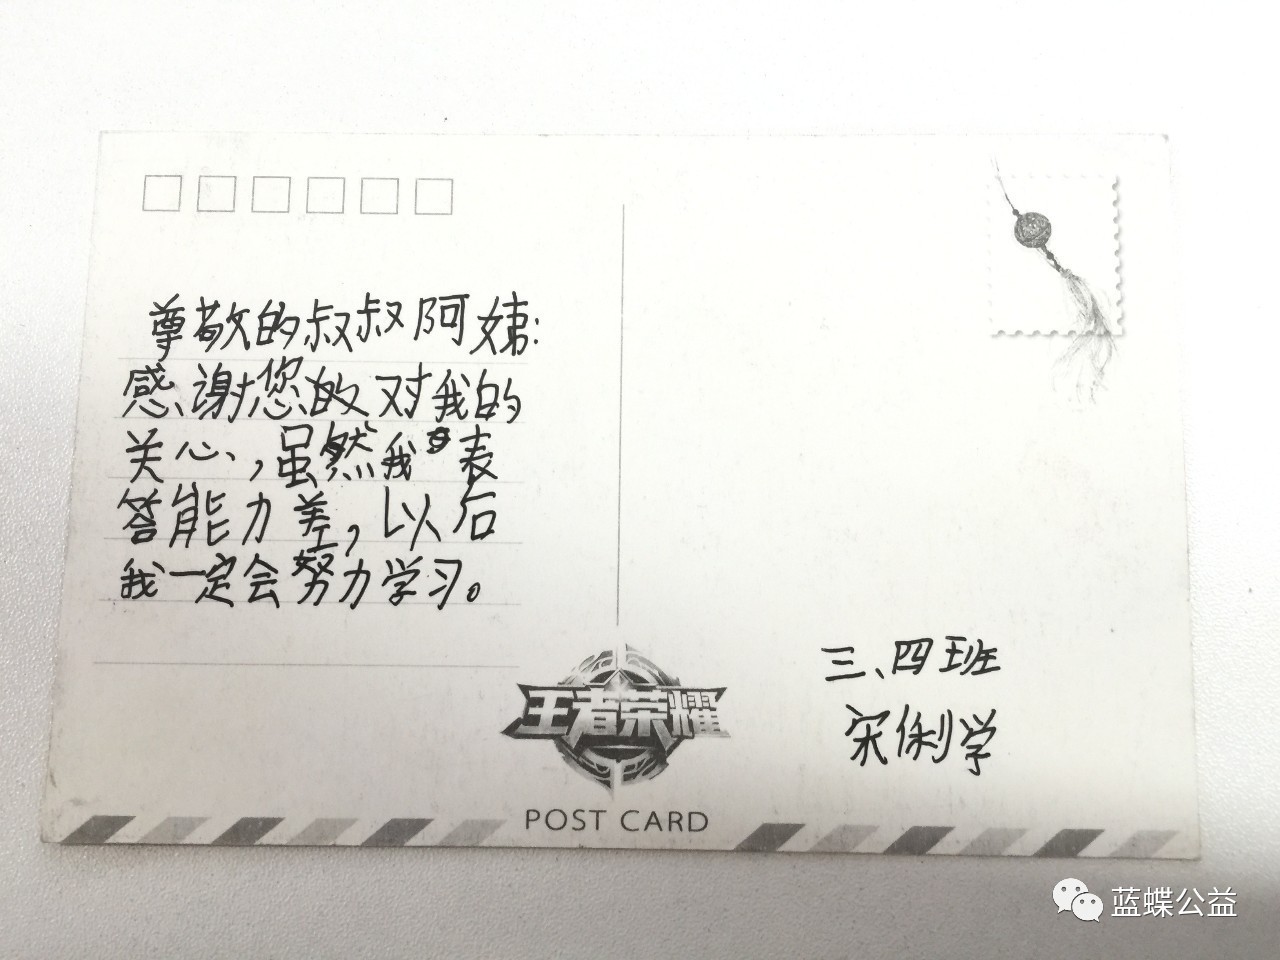 尊敬的叔叔阿姨:
感谢您的对我的
关心,虽然我表
答能力差,以后
我一定会努力学习。
三、四班
宋俐学
王者荣耀
POST CARD
蓝蝶公益